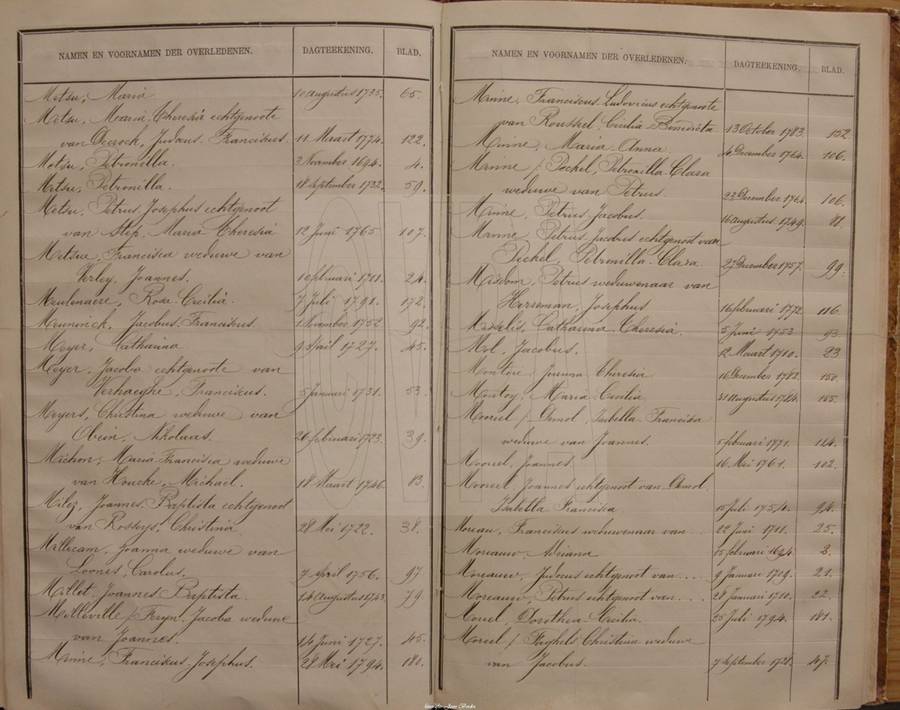 NAMEN EN VOORNAMEN DER OVERLEDENEN. DAGTEEKENING. BLAD.
Metsu, Maria 10 Augustus 1735. 65.
Metsu, Maria Theresia echtgenoote
van Judocus Franciscus. 11 Maart 1774. 122.
Metsu, Petronella. 3 November 1694. 4.
Metsu, Petronilla. 18 September 1732. 59.
Metsu, Petrus Josephus echtgenoot
van Step, Maria Theresia 12 Juni 1765 107.
Metsu, Francisca weduwe van
Verley, Joannes. 10 februari 1711. 24.
Meulenaere, Rosa Cecilia. 7 Juli 1791. 172.
Jacobus Franciscus. 1 November 1752 92.
Meyer, Catharina 9 April 1727. 45.
Meyer, Jacoba echtgenoote van
Verhaeghe, Franciscus. 5 januari 1731. 53.
Meyers, Christina weduwe van
Obein, Nikolaas. 26 februari 1723. 39.
Michon, Maria Francisca weduwe
van Houcke, Michael. 18 Maart 1746. 83.
Milez, Joannes Baptista echtgenoot
van Rossys, Christina 28 Mei 1722. 38.
Millecam, Joanna weduwe van
Loones, Carolus. 7 April 1756. 97.
Millet, Joannes Baptista. 24 Augustus 1743. 79.
Milleville / Feryn, Jacoba weduwe
van Joannes. 14 Juni 1727. 45.
Minne, Franciscus Josephus. 28 Mei 1794. 180.
NAMEN EN VOORNAMEN DER OVERLEDENEN. DAGTEEKENING. BLAD.
Minne, Franciscus Ludovicus echtgenoote
van Roussel, Cecilia Benedicta 13 October 1783. 152
Minne, Maria Anna 4 December 1764. 106.
Minne / Peckel, Petronilla Clara
weduwe van Petrus 23 December 1764. 106.
Minne, Petrus Jacobus. 16 Augustus 1749. 88.
Minne, Petrus Jacobus echtgenoot van
Peckel, Petronilla Clara. 27 December 1757. 99.
Misdom, Petrus weduwenaar van
Herreman, Josephus 16 februari 1772. 116.
Misselis, Catharina Theresia. 5 Juni 1753 93.
Mol, Jacobus. 12 Maart 1710. 23
Theresia 16 December 1782. 150.
Maria Cecilia 31 Augustus
Moreel / Amol, Isabella Francisca
weduwe van Joannes. 5 februari 1771. 114.
Moreel, Joannes. 16 Mei 1761. 102.
Moreel, Joannes echtgenoot van Amol
Isabella Francisca 15 Juli 1754. 94.
Moreau, Franciscus weduwenaar van ... 22 Juni 1711. 25.
Moreauw, Adriana 15 februari 1694 3.
Moreauw, Judocus echtgenoot van .... 9 Januari 1709. 21.
Moreauw, Petrus echtgenoot van .... 28 Januari 1710. 22.
Morel, Dorothea Cecilia. 25 Juli 1794. 181.
Morel / Pieghels Christina weduwe
van Jacobus. 7 September 1728. 47.